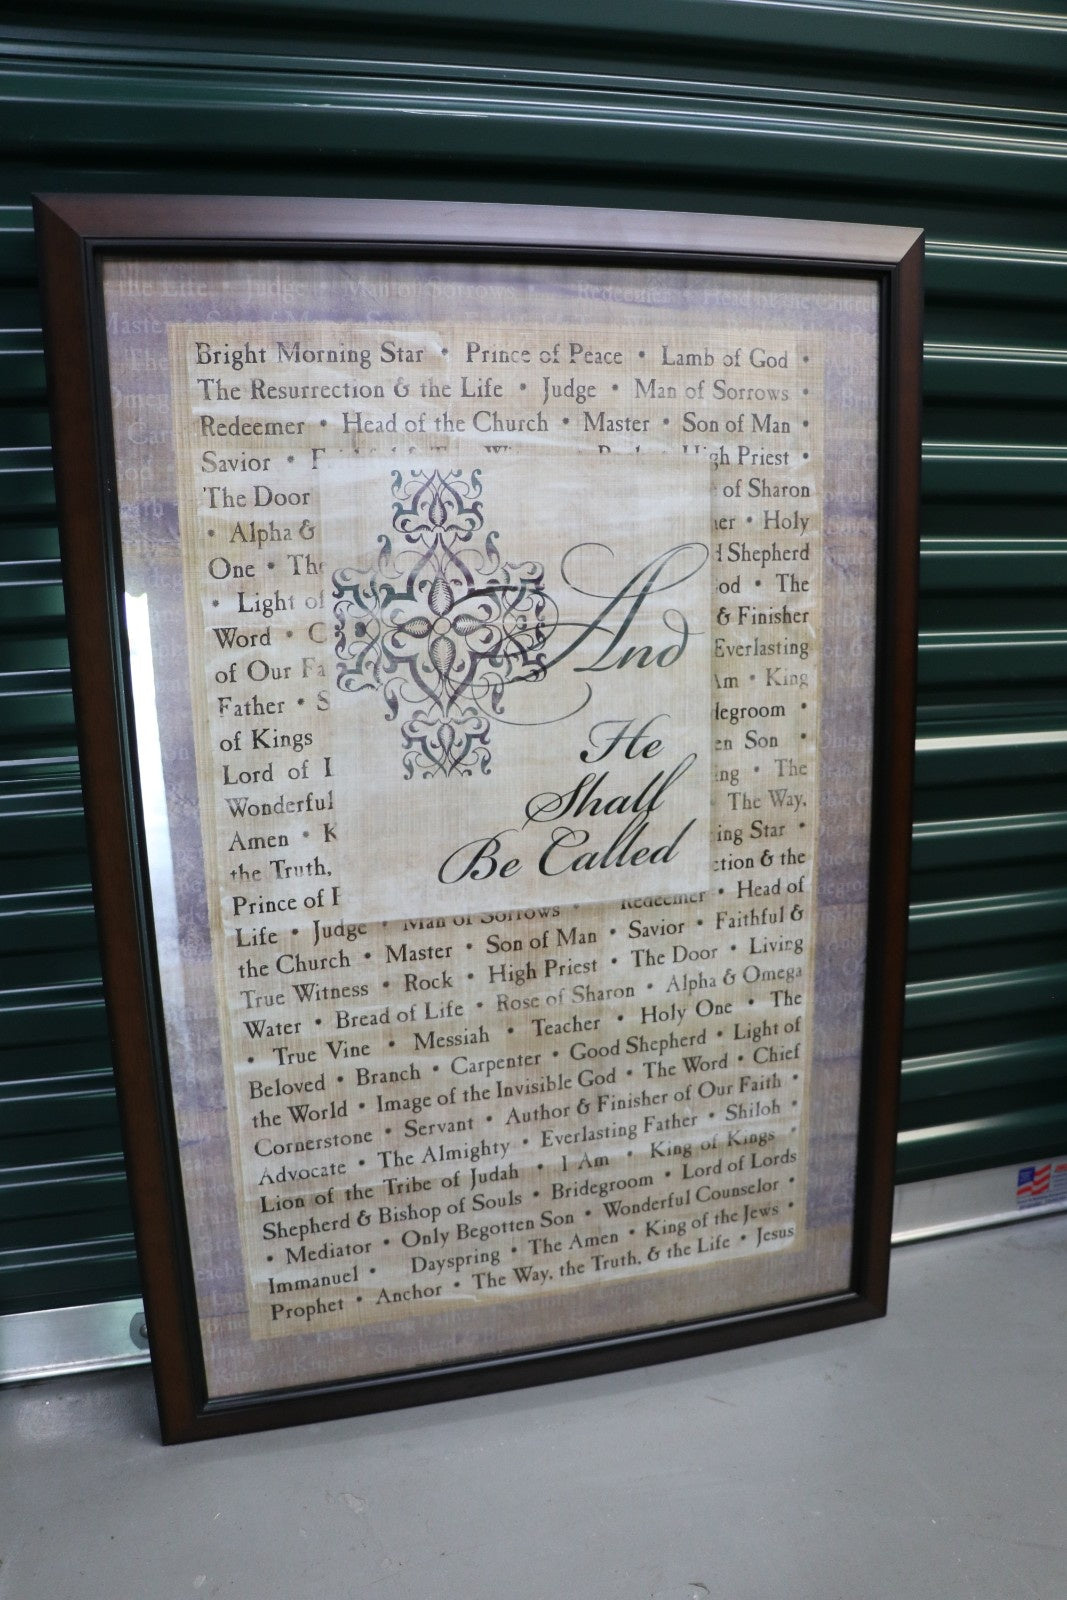 the Life • Judge • Man of Sorrows • Redeemer • Head of the Church
Master
Bright Morning Star • Prince of Peace • Lamb of God •
The Resurrection & the Life • Judge • Man of Sorrows •
Redeemer • Head of the Church • Master • Son of Man •
Savior • High Priest •
The Door of Sharon
• Alpha & • Holy
One • Shepherd
• Light of • The
Word • & Finisher
of Our Everlasting
Father • • King
of Kings •
Lord of Son •
Wonderful • The
Amen • The Way,
the Truth, Star •
Prince of & the
Life • Judge • Man of Sorrows • Redeemer • Head of
the Church • Master • Son of Man • Savior • Faithful &
True Witness • Rock • High Priest • The Door • Living
Water • Bread of Life • Rose of Sharon • Alpha & Omega
• True Vine • Messiah • Teacher • Holy One • The
Beloved • Branch • Carpenter • Good Shepherd • Light of
the World • Image of the Invisible God • The Word • Chief
Cornerstone • Servant • Author & Finisher of Our Faith •
Advocate • The Almighty • Everlasting Father • Shiloh •
Lion of the Tribe of Judah • I Am • King of Kings •
Shepherd & Bishop of Souls • Bridegroom • Lord of Lords
• Mediator • Only Begotten Son • Wonderful Counselor •
Immanuel • Dayspring • The Amen • King of the Jews •
Prophet • Anchor • The Way, the Truth, & the Life • Jesus
And
He
Shall
Be Called